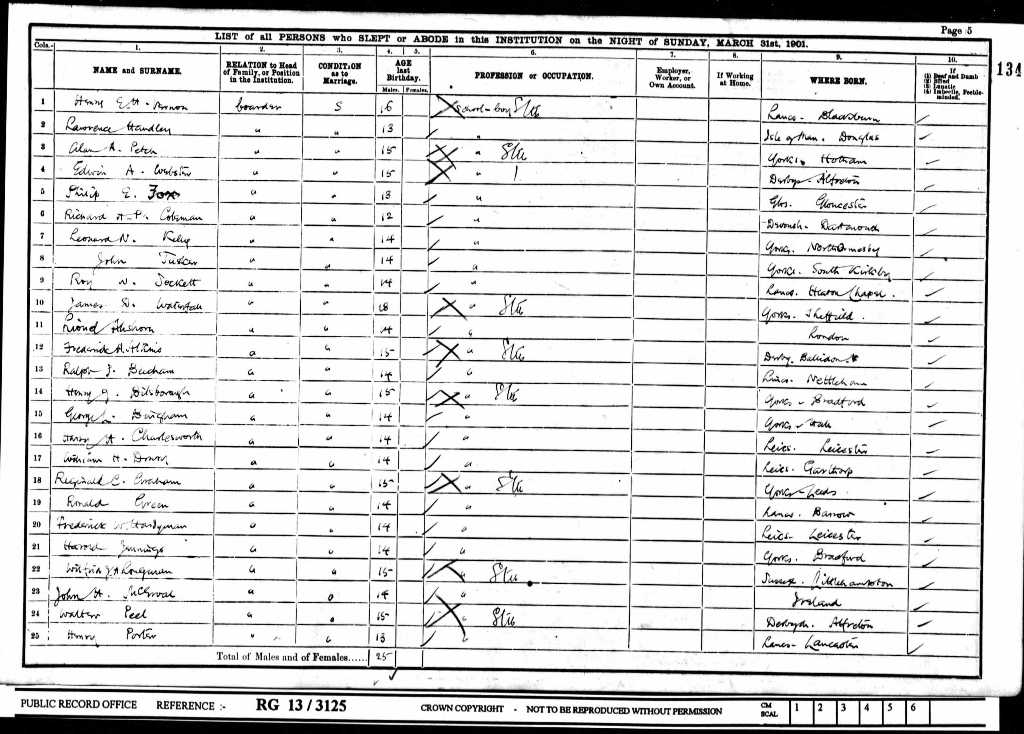 Page 5
LIST of all PERSONS who SLEPT or ABODE in this INSTITUTION on the NIGHT of SUNDAY, MARCH 31st, 1901.
Cols.- 1. 2. 3. 4. 5. 6. 7. 8. 9. 10.
NAME and SURNAME. RELATION to Head of Family, or Position in the Institution. CONDITION as to Marriage. AGE last Birthday. Males. Females. PROFESSION or OCCUPATION. Employer, Worker, or Own Account. If Working at Home. WHERE BORN. If (1) Deaf and Dumb (2) Blind (3) Lunatic (4) Imbecile, Feeble-minded.
134
1 Henry E. H. boarder S 16 school-boy Stu Lancs. Blackburn
2 Lawrence Handley " " 13 " Isle of Man. Douglas
3 Alan A. Petch " " 15 " Stu Yorks. Hotham
4 Edwin A. Webster " " 15 " Derbys. Alfreton
5 Philip E. Fox " " 13 " Glos. Gloucester
6 Richard H. P. Coleman " " 12 " Devonsh. Dartmouth
7 Leonard N. " " 14 " Yorks. North Ormesby
8 John Tucker " " 14 " Yorks. South Kirkby
9 Roy W. Jockett " " 14 " Lancs. Heaton Chapel.
10 James D. Waterfall " " 18 " Stu Yorks. Sheffield.
11 Lionel " " 14 " London
12 Frederick H. " " 15 " Stu Derby.
13 Ralph J. Beecham " " 14 " Lincs. Nettleham
14 Henry J. Dilsborough " " 15 " Stu Yorks - Bradford
15 George Bingham " " 14 " Yorks - Hull
16 Harry H. Charlesworth " " 14 " Leics. Leicester
17 William H. " " 14 " Leics. Garthorp
18 Reginald C. Graham " " 15 " Stu Yorks - Leeds
19 Ronald Green " " 14 " Lancs. Barrow
20 Frederick W. Hardyman " " 14 " Leics Leicester
21 Harold Jennings " " 14 " Yorks. Bradford
22 Wilfrid " " 15 Stu Sussex. Littlehampton
23 John H. McElroal " " 14 " Ireland
24 Walter Peel " " 15 " Stu Derbysh. Alfreton
25 Henry Porter " " 13 " Lancs - Lancaster
Total of Males and of Females...... 25
PUBLIC RECORD OFFICE REFERENCE :- RG 13 / 3125 CROWN COPYRIGHT - NOT TO BE REPRODUCED WITHOUT PERMISSION CM SCAL 1 2 3 4 5 6